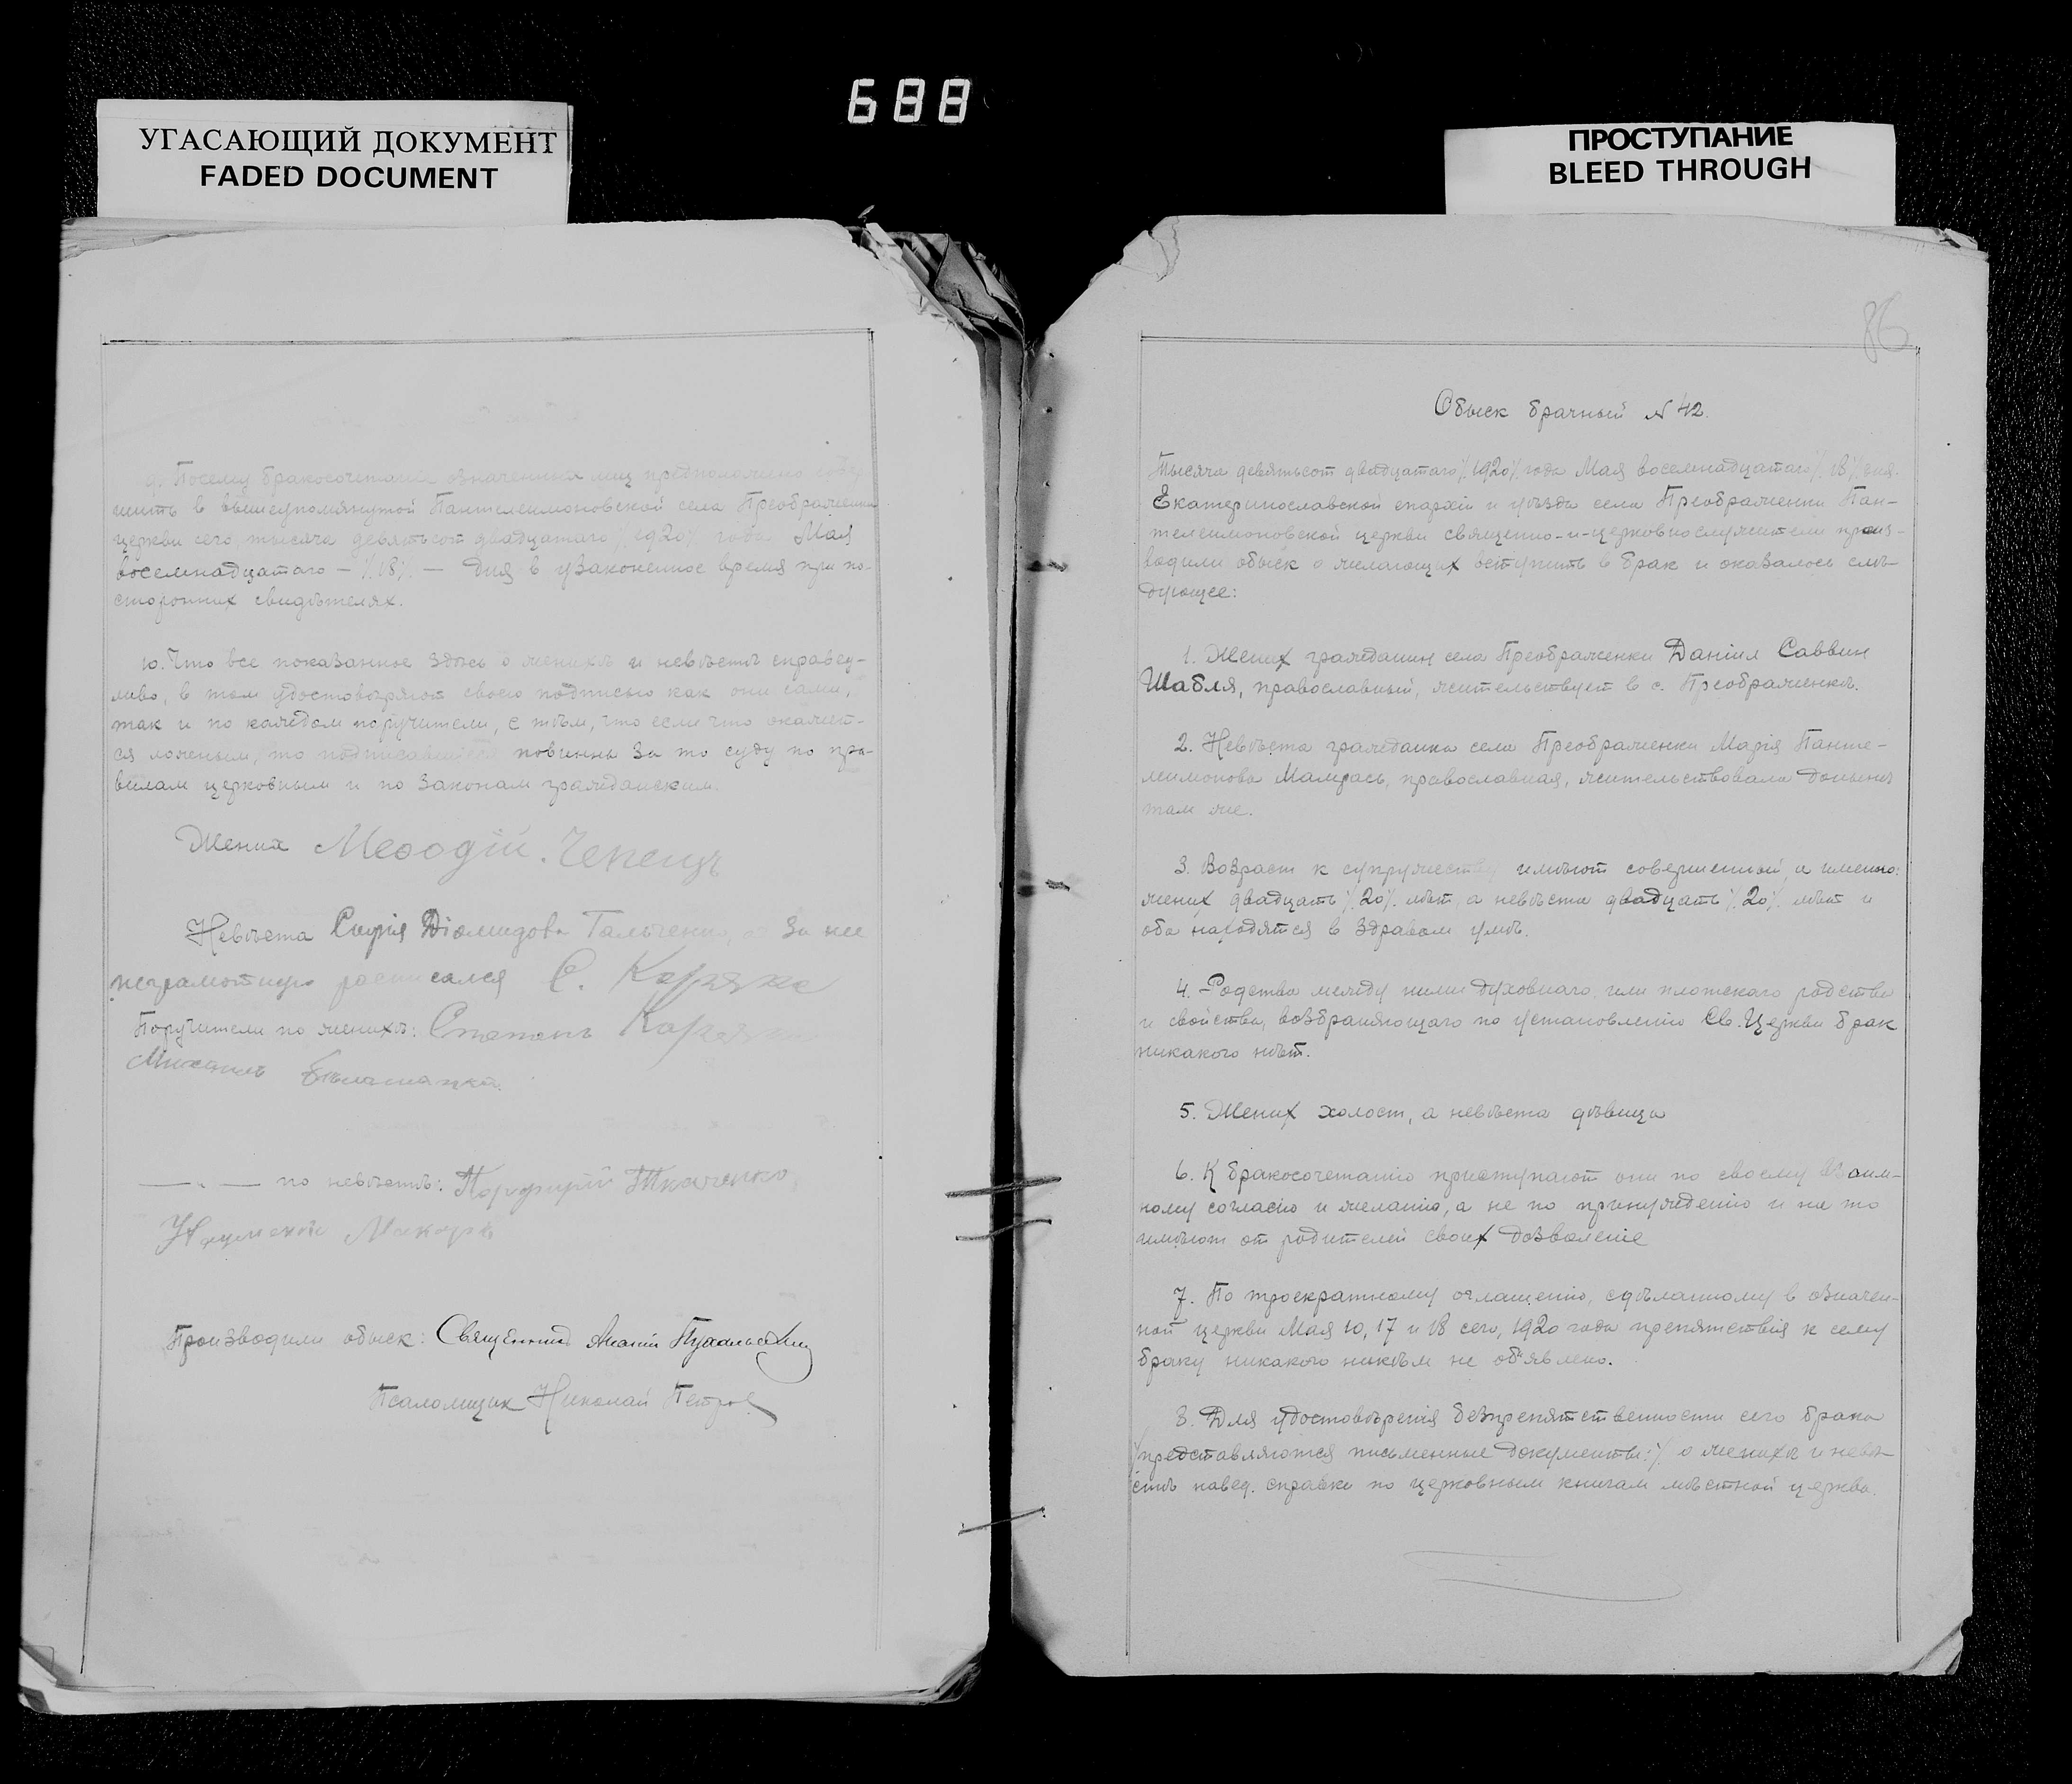 688
УГАСАЮЩИЙ ДОКУМЕНТ
FADED DOCUMENT
ПРОСТУПАНИЕ
BLEED THROUGH
9. Посему бракосочетание означенных лиц предположено совер-
шить в вышеупомянутой Пантелеимоновской села Преображенки
церкви сего, тысяча девятьсот двадцатаго /.1920/. года Мая
восемнадцатаго — /.18/. — Дня в узаконенное время при по-
сторонних свидѣтелях.
10. Что все показанное здѣсь о женихѣ и невѣстѣ справед-
ливо, в том удостовѣряют своею подписью как они сами,
так и по каждом поручители, с тѣм, что если что окажет-
ся ложным, то подписавшіеся повинны за то суду по пра-
вилам церковным и по законам гражданским.
Жених Меѳодій Чепецъ
Невѣста Діомидова за нее
неграмотную расписался С. Каряка
Поручители по женихѣ: Степанъ Каряка
Михаилъ
— „ — по невѣстѣ: Порфирій Ткаченко,
Макаръ
Производили обыск: Священник
Псаломщик Николай Петров
86
Обыск брачный N 42.
Тысяча девятьсот двадцатаго /.1920/. года Мая восемнадцатаго /.18/. дня.
Екатеринославской епархіи и уѣзда села Преображенки Пан-
телеимоновской церкви священно-и-церковнослужители произ-
водили обыск о желающих вступить в брак и оказалось слѣ-
дующее:
1. Жених гражданин села Преображенки Даніил Саввин
Шабля, православный, жительствует в с. Преображенкѣ.
2. Невѣста гражданка села Преображенки Марія Панте-
леимонова православная, жительствовала донынѣ
там же.
3. Возраст к супружеству имѣют совершенный, а именно:
жених двадцать /.20/. лѣт, а невѣста двадцать /.20/. лѣт и
оба находятся в здравом умѣ.
4. Родства между ними духовнаго или плотскаго родства
и свойства, возбраняющаго по установленію Св. Церкви брак
никакого нѣт.
5. Жених холост, а невѣста дѣвица
6. К бракосочетанію приступают они по своему взаим-
ному согласію и желанію, а не по принужденію и на то
имѣют от родителей своих дозволеніе
7. По троекратному оглашенію, сдѣланному в означен-
ной церкви Мая 10, 17 и 18 сего, 1920 года препятствія к сему
браку никакого никѣм не объявлено.
8. Для удостовѣренія безпрепятственности сего брака
представляются письменные документы:/. о женихѣ и невѣ-
стѣ навед. справки по церковным книгам мѣстной церкви.